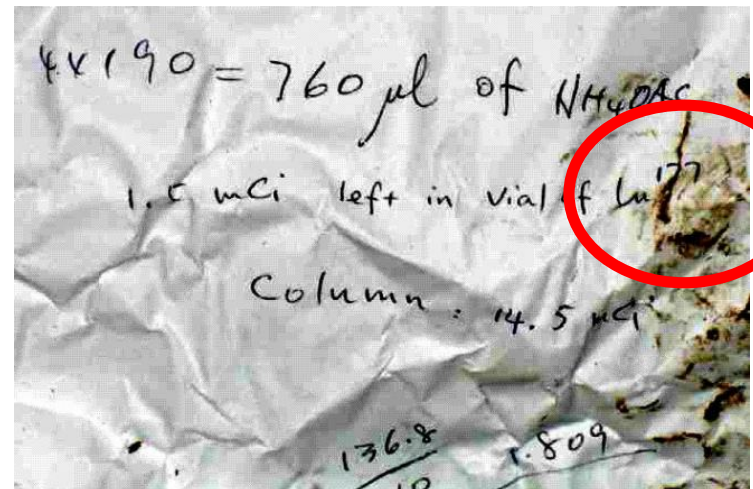 4x190 = 760 µl of NH4OAc
1.5 mCi left in vial of Lu177
Column : 14.5 mCi
136.8 1.809
10